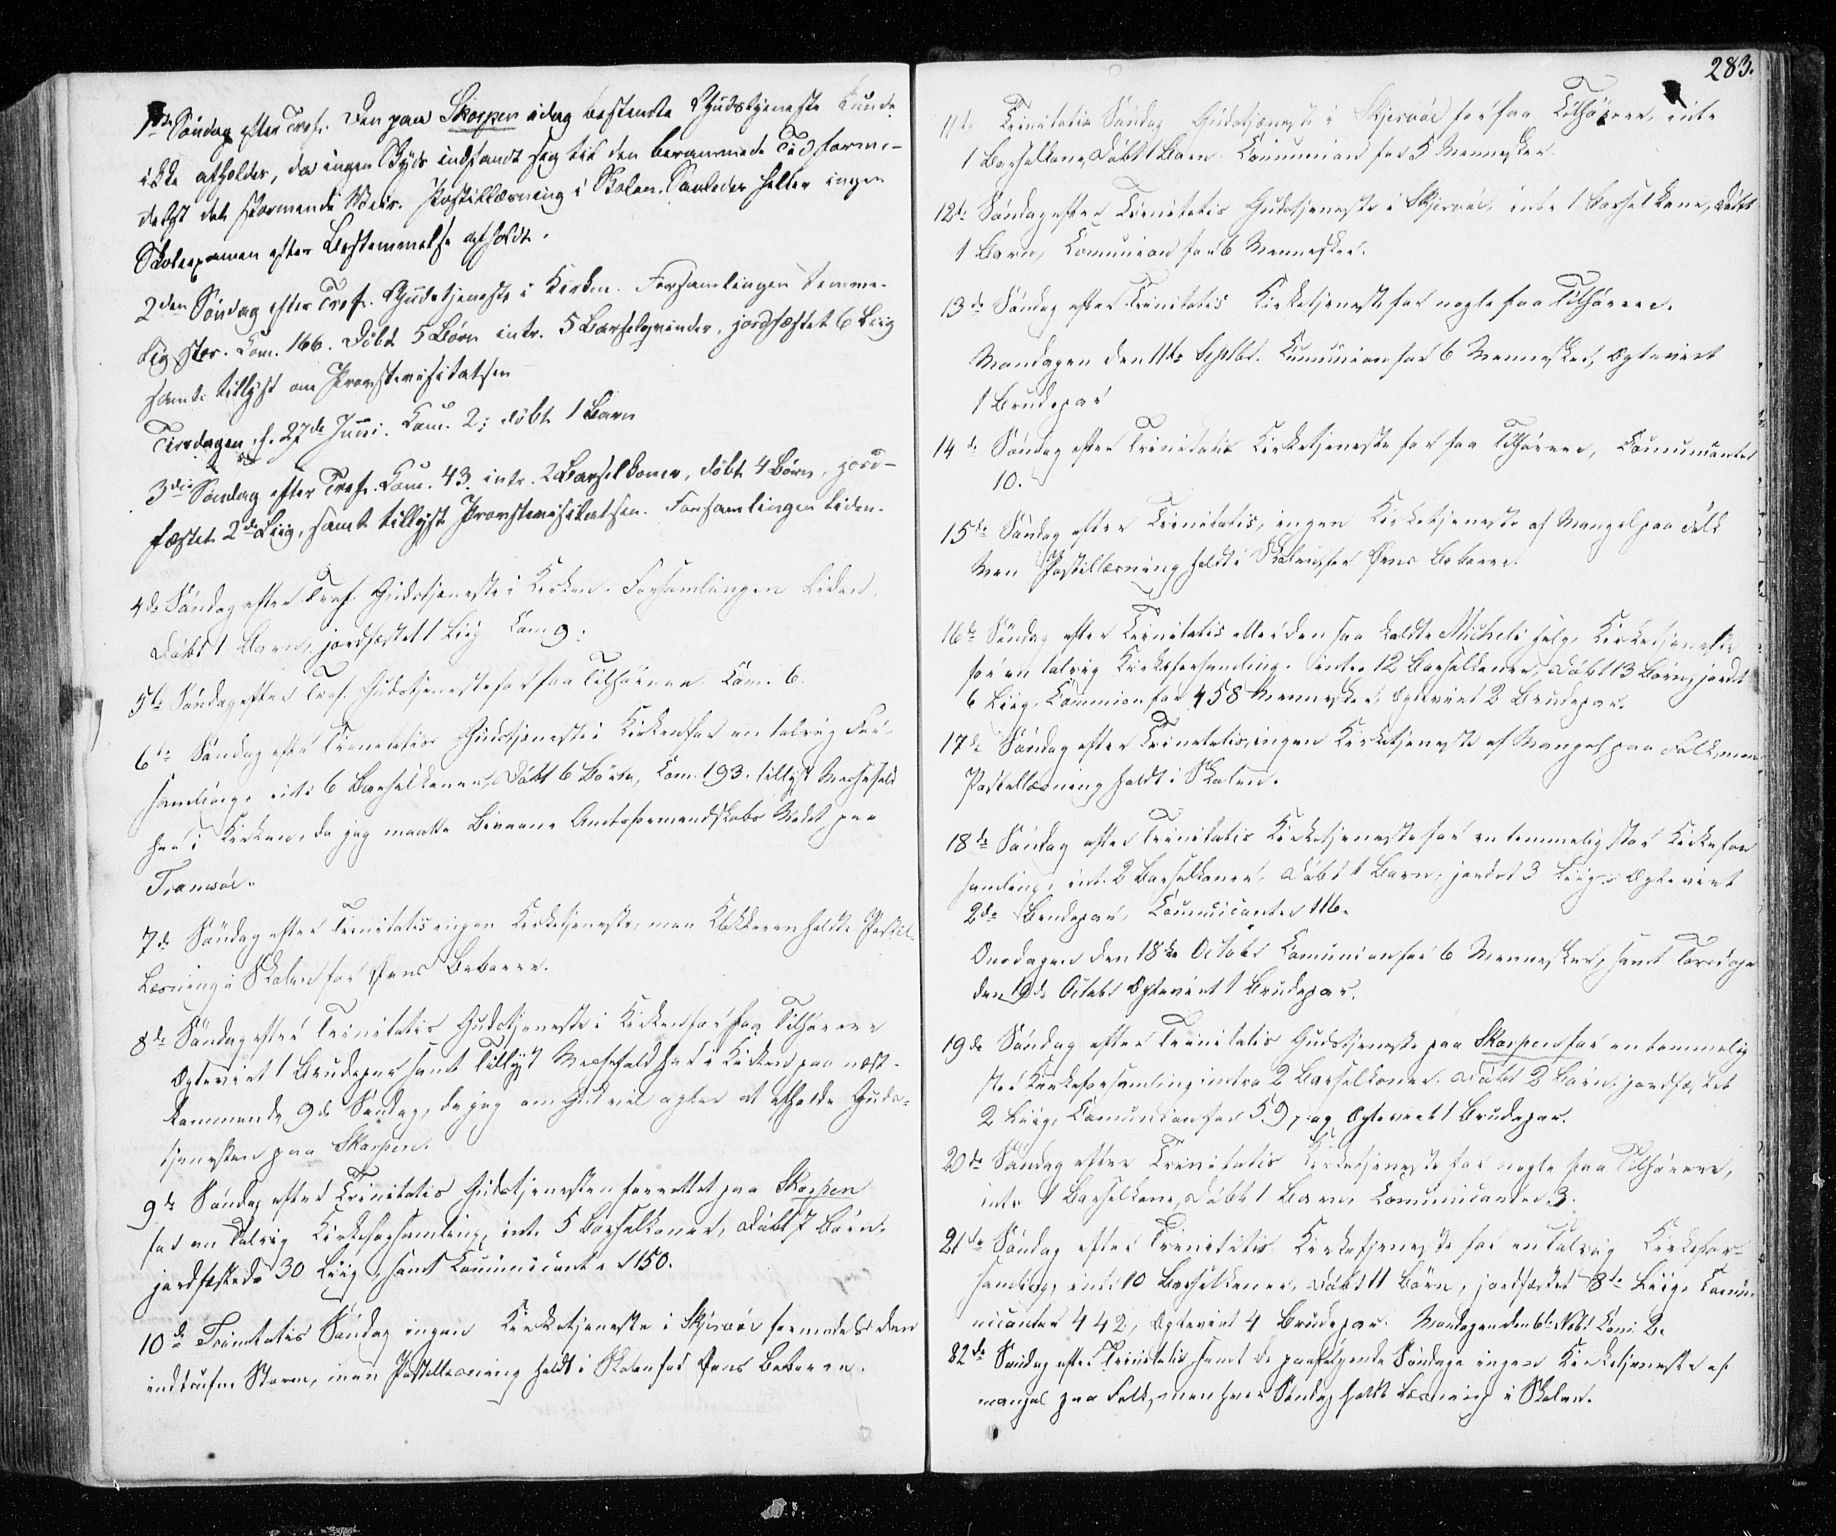 1ste Søndag efter Tref. Den paa Skorpen idag bestemte Gudstjeneste kunde
ikke afholdes, da ingen Skyds indfandt sig til den berammede Tid formedelst
delst det stormende Veir. Postillæsning i Skolen. Saaledes heller ingen
Skoleexamen efter Bestemmelse afholdt.
2den Søndag efter Tref. Gudstjeneste i Kirken. Forsamlingen temme-
lig stor. Com. 166. Døbt 5 Børn intr. 5 Barselqvinder, jordfæstet 6 Liig
samt tillyst om Provstevisitatsen
Tirsdagen d. 27de Juni. Com. 2; døbt 1 Barn
3die Søndag efter Tref. Com. 43. intr. 2 Barselkoner, døbt 4 Børn, jord-
fæstet 2de Liig, samt tillyst Provstevisitatsen. Forsamlingen liden.
4de Søndag efter Tref. Gudstjeneste i Kirken. Forsamlingen liden.
Døbt 1 Barn, jordfæstet 1 Liig Com 9.
5te Søndag efter Tref. Gudstjeneste for faa Tilhørere. Com. 6.
6te Søndag efter Trinitatis Gudstjeneste i Kirken for en talrig For-
samling, int: 6 Barselkoner, Døbt 6 Børn, Com. 193. tillyst Messefald
her i Kirken, da jeg maatte bivaane Amtsformandskabs Mødet paa
Tromsøe.
7de Søndag efter Trinitatis ingen Kirketjeneste, men Klokkeren holdt Postil-
læsning i Skolen for Øens Beboere.
8de Søndag efter Trinitatis Gudstjeneste i Kirken for faa Tilhørere
Egteviet 1 Brudepar samt Tillyst Messefald her i Kirken paa næst-
kommende 9de Søndag, da jeg om Gud vil agter at afholde Guds-
tjenesten paa Skorpen.
9de Søndag efter Trinitatis Gudstjenesten forrettet paa Skorpen
for en talrig Kirkeforsamling, int. 5 Barselkoner, Døbt 7 Børn,
jordfæstede 30 Liig, samt Communicanter 150.
10de Trinitatis Søndag ingen Kirketjeneste i Skjervøe formedelst den
indtrufne Storm, men Postillæsning holdt i Skolen for Øens Beboere.
283.
11te Trinitatis Søndag Gudstjeneste i Skjervøe for faa Tilhørere, intr
1 Barselkone, Døbt 1 Barn. Communion for 5 Mennesker.
12te Søndag efter Trinitatis Gudstjeneste i Skjervøe, intr 1 Barselkone, Døbt
1 Barn, Comunion for 6 Mennesker.
13de Søndag efter Trinitatis Kirketjeneste for nogle faa Tilhørere.
Mandagen den 11te Septbr. Cumunion for 6 Mennesker, Egteviet
1 Brudepar
14de Søndag efter Trinitatis Kirketjeneste for faa Tilhørere, Communicanter
10.
15de Søndag efter Trinitatis, ingen Kirketjeneste af Mangel paa Folk
men Postillæsning holdt i Skolen for Øens Beboere.
16de Søndag efter Trinitatis eller den saa kaldte Micheli Helg, Kirketjeneste
for en talrig Kirkeforsamling. Intro 12 Barselkoner, Døbt 13 Børn, jordet
6 Liig, Communion for 458 Mennesker, Egteviet 2 Brudepar.
17de Søndag efter Trinitatis, ingen Kirketjeneste af Mangel paa Folk, men
Postillæsning holdt i Skolen.
18de Søndag efter Trinitatis Kirketjeneste for en temmelig stor Kirkefor
samling, int. 2 Barselkoner, Døbt 1 Barn, jordet 3 Liig, Egteviet
2de Brudepar, Communicanter 116.
Onsdagen den 18de Octobr Comunion for 6 Mennesker, samt Torsdagen
den 19de Octobr Egteviet 1 Brudepar.
19de Søndag efter Trinitatis Gudstjeneste paa Skorpen for en temmelig
stor Kirkeforsamling intro 2 Barselkoner. Døbt 2 Børn. jordfæstet
2 Liig, Comunion for 59, og Egteviet 1 Brudepar.
20de Søndag efter Trinitatis Kirketjeneste for nogle faa Tilhørere,
intr 1 Barselkone, Døbt 1 Barn Comunicanter 3.
21de Søndag efter Trinitatis Kirketjeneste for en talrig Kirkefor-
samling, intr: 10 Barselkoner, Døbt 11 Børn, jordfæstet 8te Liig, Comu
nicanter 442, Egteviet 4 Brudepar. Mandagen den 6te Novbr Com: 2.
82de Søndag efter Trinitatis samt de paafølgende Søndage ingen Kirketjeneste af
mangel paa Folk, men hver Søndag holdt Læsning i Skolen.